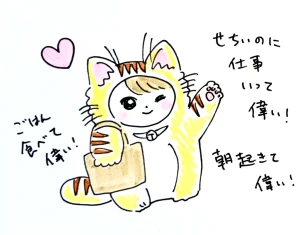 せちいのに
仕事
いって
偉い!
ごはん
食べて
偉い!
朝起きて
偉い!